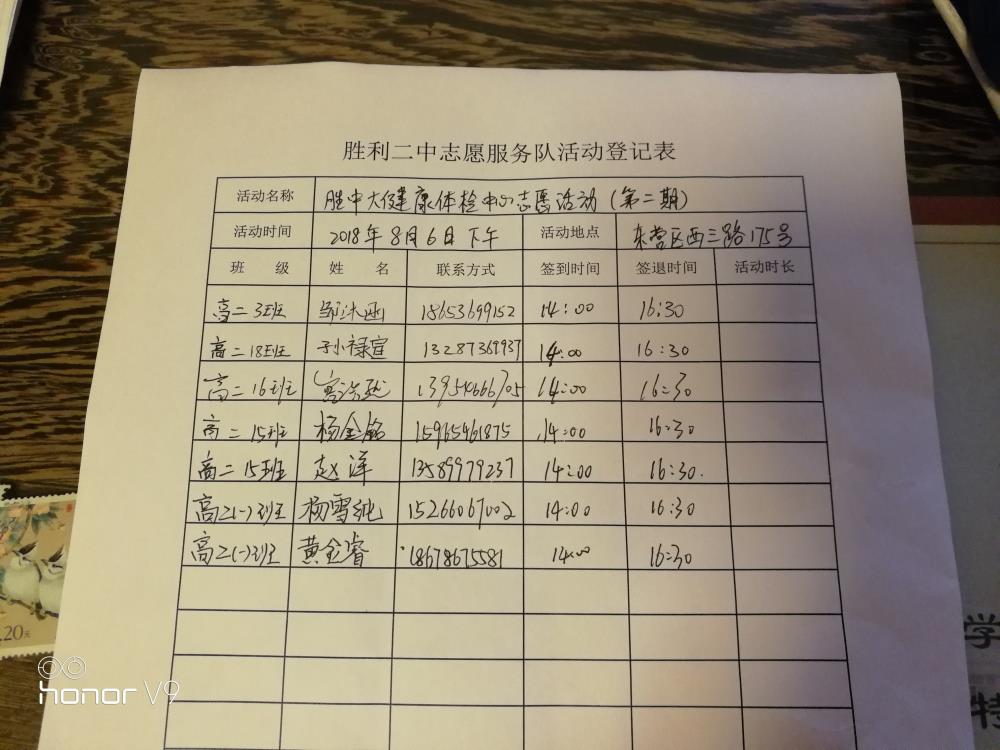 胜利二中志愿服务队活动登记表
活动名称 胜中大健康体检中心志愿活动（第二期）
活动时间 2018年8月6日下午 活动地点 东营区西三路175号
班 级 姓 名 联系方式 签到时间 签退时间 活动时长
高二3班 邹沐函 18653699152 14:00 16:30
高二18班 孙禄宣 13287369937 14:00 16:30
高二16班 13954666705 14:00 16:30
高二15班 杨金铭 15965461875 14:00 16:30
高二15班 赵洋 13589979237 14:00 16:30.
高二(一)班 杨雪纯 15266067002 14:00 16:30
高二(一)班 黄金睿 18678675581 14:00 16:30
.20元
学
特
honor V9